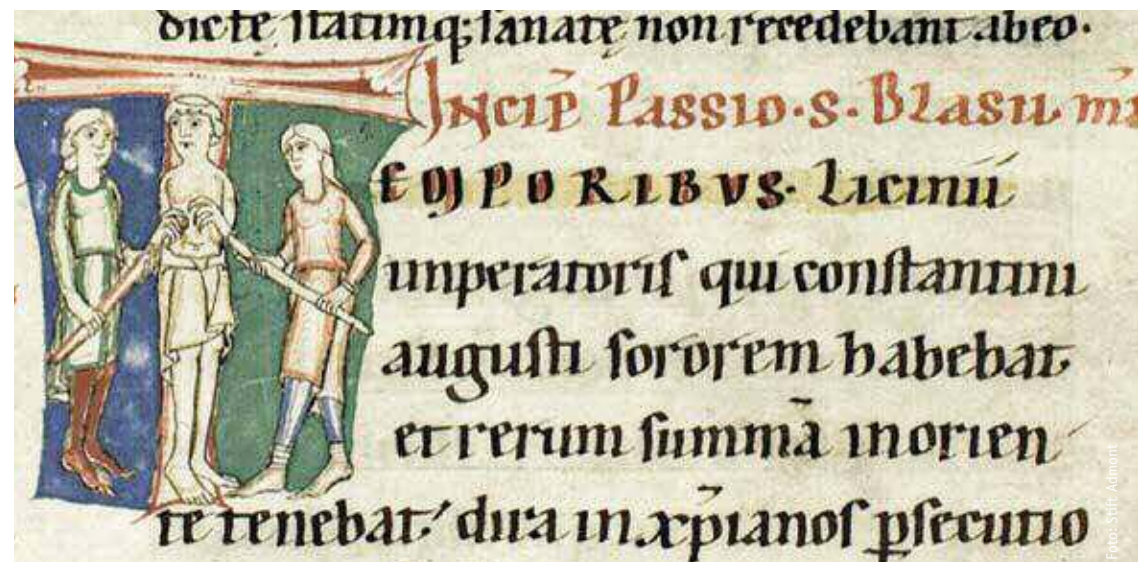 dictę statimq; sanatę non recedebant ab eo.
Incip̄ Passio·s·Blasii m̄
TEMPORIBVS· Licinii
imperatoris qui constantini
augusti sororem habebat
et rerum summā in orien
te tenebat, dira in xp̄ianos p̱secutio
Foto: Stift Admont